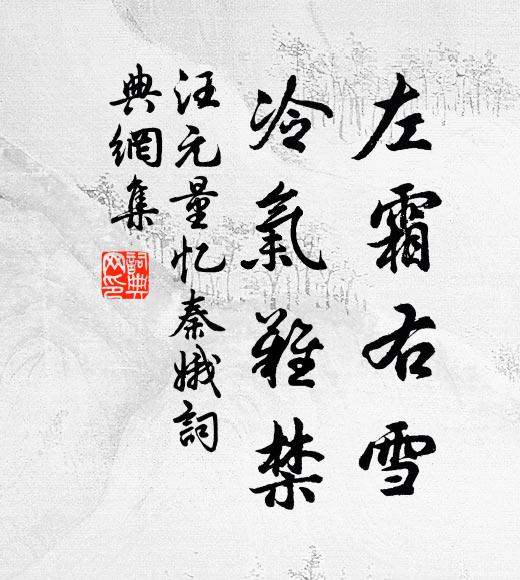 左霜右雪
冷氣難禁
汪元量忆秦娥詞
典網集
詞典網印